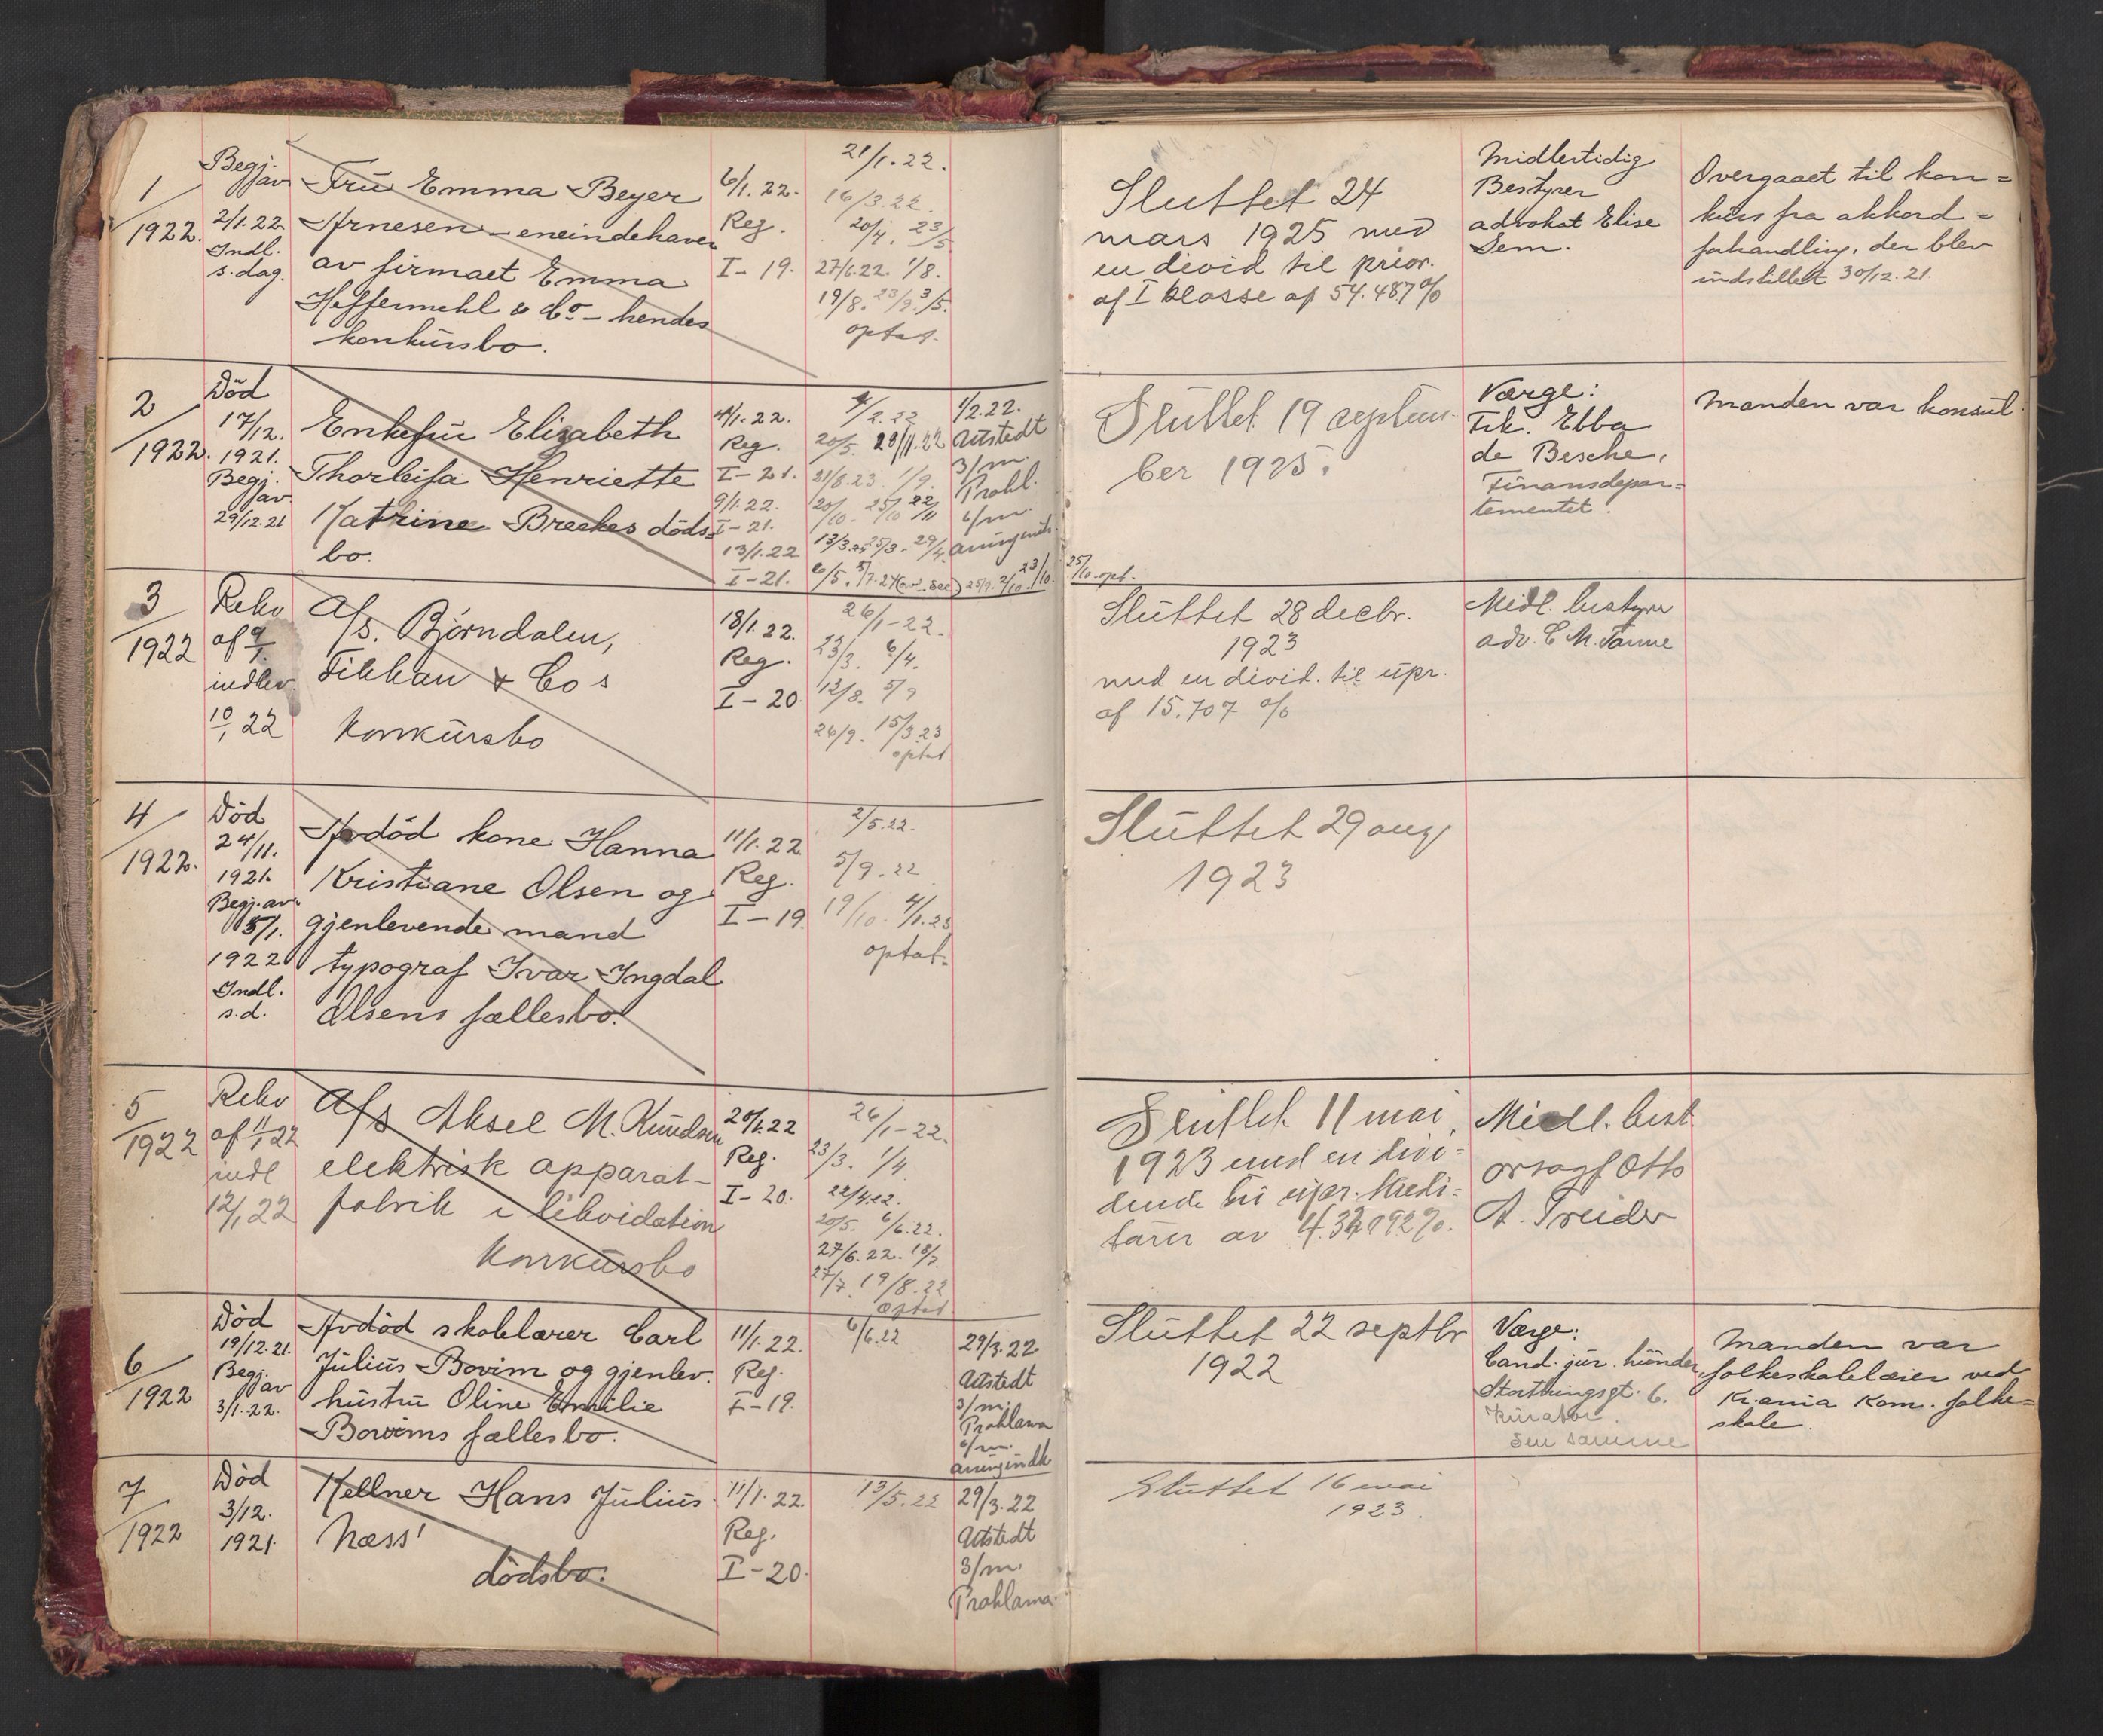 1/1922.
Begj. av
2/1.22.
Indl.
s. dag.
Fru Emma Beyer
Arnesen – eneindehaver
av firmaet Emma
Heffermehl & Co – hendes
konkursbo.
6/1.22.
Reg.
I – 19.
21/1.22.
16/3.22.
20/4. 23/5
27/6.22. 1/8.
19/8. 23/9. 3/5.
optat.
Sluttet 24
mars 1925 med
en divid til prior.
af I klasse af 54.487%
Midlertidig
Bestyrer
advokat Elise
Sem.
Overgaaet til kon=
kurs fra akkord=
forhandling, der blev
indstillet 30/12.21.
2/1922.
Død
17/12.
1921.
Begj.
av
29/12.21
Enkefru Elizabeth
Thorleifa Henriette
Katrine Breckes døds=
bo.
4/1.22.
Reg.
I – 21.
9/1.22.
I – 21.
13/1.22
I – 21.
4/2.22
20/5. 28/11.22
21/8.23. 1/9.
20/10. 25/10 22/11
13/3.24 25/3. 29/4.
6/5. 25/9. 2/10. 23/10. 25/10. opt.
1/2.22.
Utstedt
3/m.
Prokl.
6/m.
Sluttet 19 septem-
ber 1925.
Værge:
Frk. Ebba
de Besche,
Finansdepar=
tementet.
Manden var konsul.
3/1922
Rekv
af 9/1.
indlev.
10/1 22
A/s. Bjørndalen,
Fikkan & Co s
Konkursbo
18/1.22.
Reg.
I – 20
26/1–22.
23/3. 6/4.
12/8. 5/9
26/9. 15/3.23
optat
Sluttet 28 decbr.
1923
med en divid. til upr.
af 15.707 %
Midl. bestyrer
adv. C M. Tanne
4/1922.
Død
24/11.
1921.
Begj. av
5/1.
1922
Indl.
s.d.
Avdød kone Hanna
Kristiane Olsen og
gjenlevende mand
typograf Ivar Ingdal
Olsens fællesbo.
11/1.22
Reg.
I – 19.
2/5.22.
5/9.22
19/10. 4/1.23
optat.
Sluttet 29 aug
1923
5/1922
Rekv
af 11/1 22
indl
12/1 22
A/s Aksel M. Knudsen
elektrisk apparat-
fabrik i likvidation
Konkursbo
20/1.22
Reg.
I – 20.
26/1–22.
23/3. 1/4
22/4.22.
20/5. 6/6.22.
27/6.22. 18/7.
27/7. 19/8.22
optat
Sluttet 11 mai
1923 med en divi=
dende til upr. kredi=
torer av
Midl. best
orsagf Otto
A. Treider
6/1922
Død
19/12.21.
Begj.
av
3/1.22.
Avdød skolelærer Carl
Julius Bovim og gjenlev.
hustru Oline Emilie
Bovims fællesbo.
11/1.22.
Reg.
I – 19.
6/6.22
29/3.22
Utstedt
3/m.
Proklama
6/m.
Sluttet 22 septbr
1922
Værge:
Cand. jur.
Stortingsgt. 6.
Kurator.
Den samme
Manden var
folkeskolelærer ved
Kr.ania Kom. folke=
skole.
7/1922
Død
3/12.
1921.
Kellner Hans Julius
Næss'
dødsbo.
11/1.22.
Reg.
I – 20.
13/5.22
29/3.22
Utstedt
3/m.
Proklama.
Sluttet 16 mai
1923.